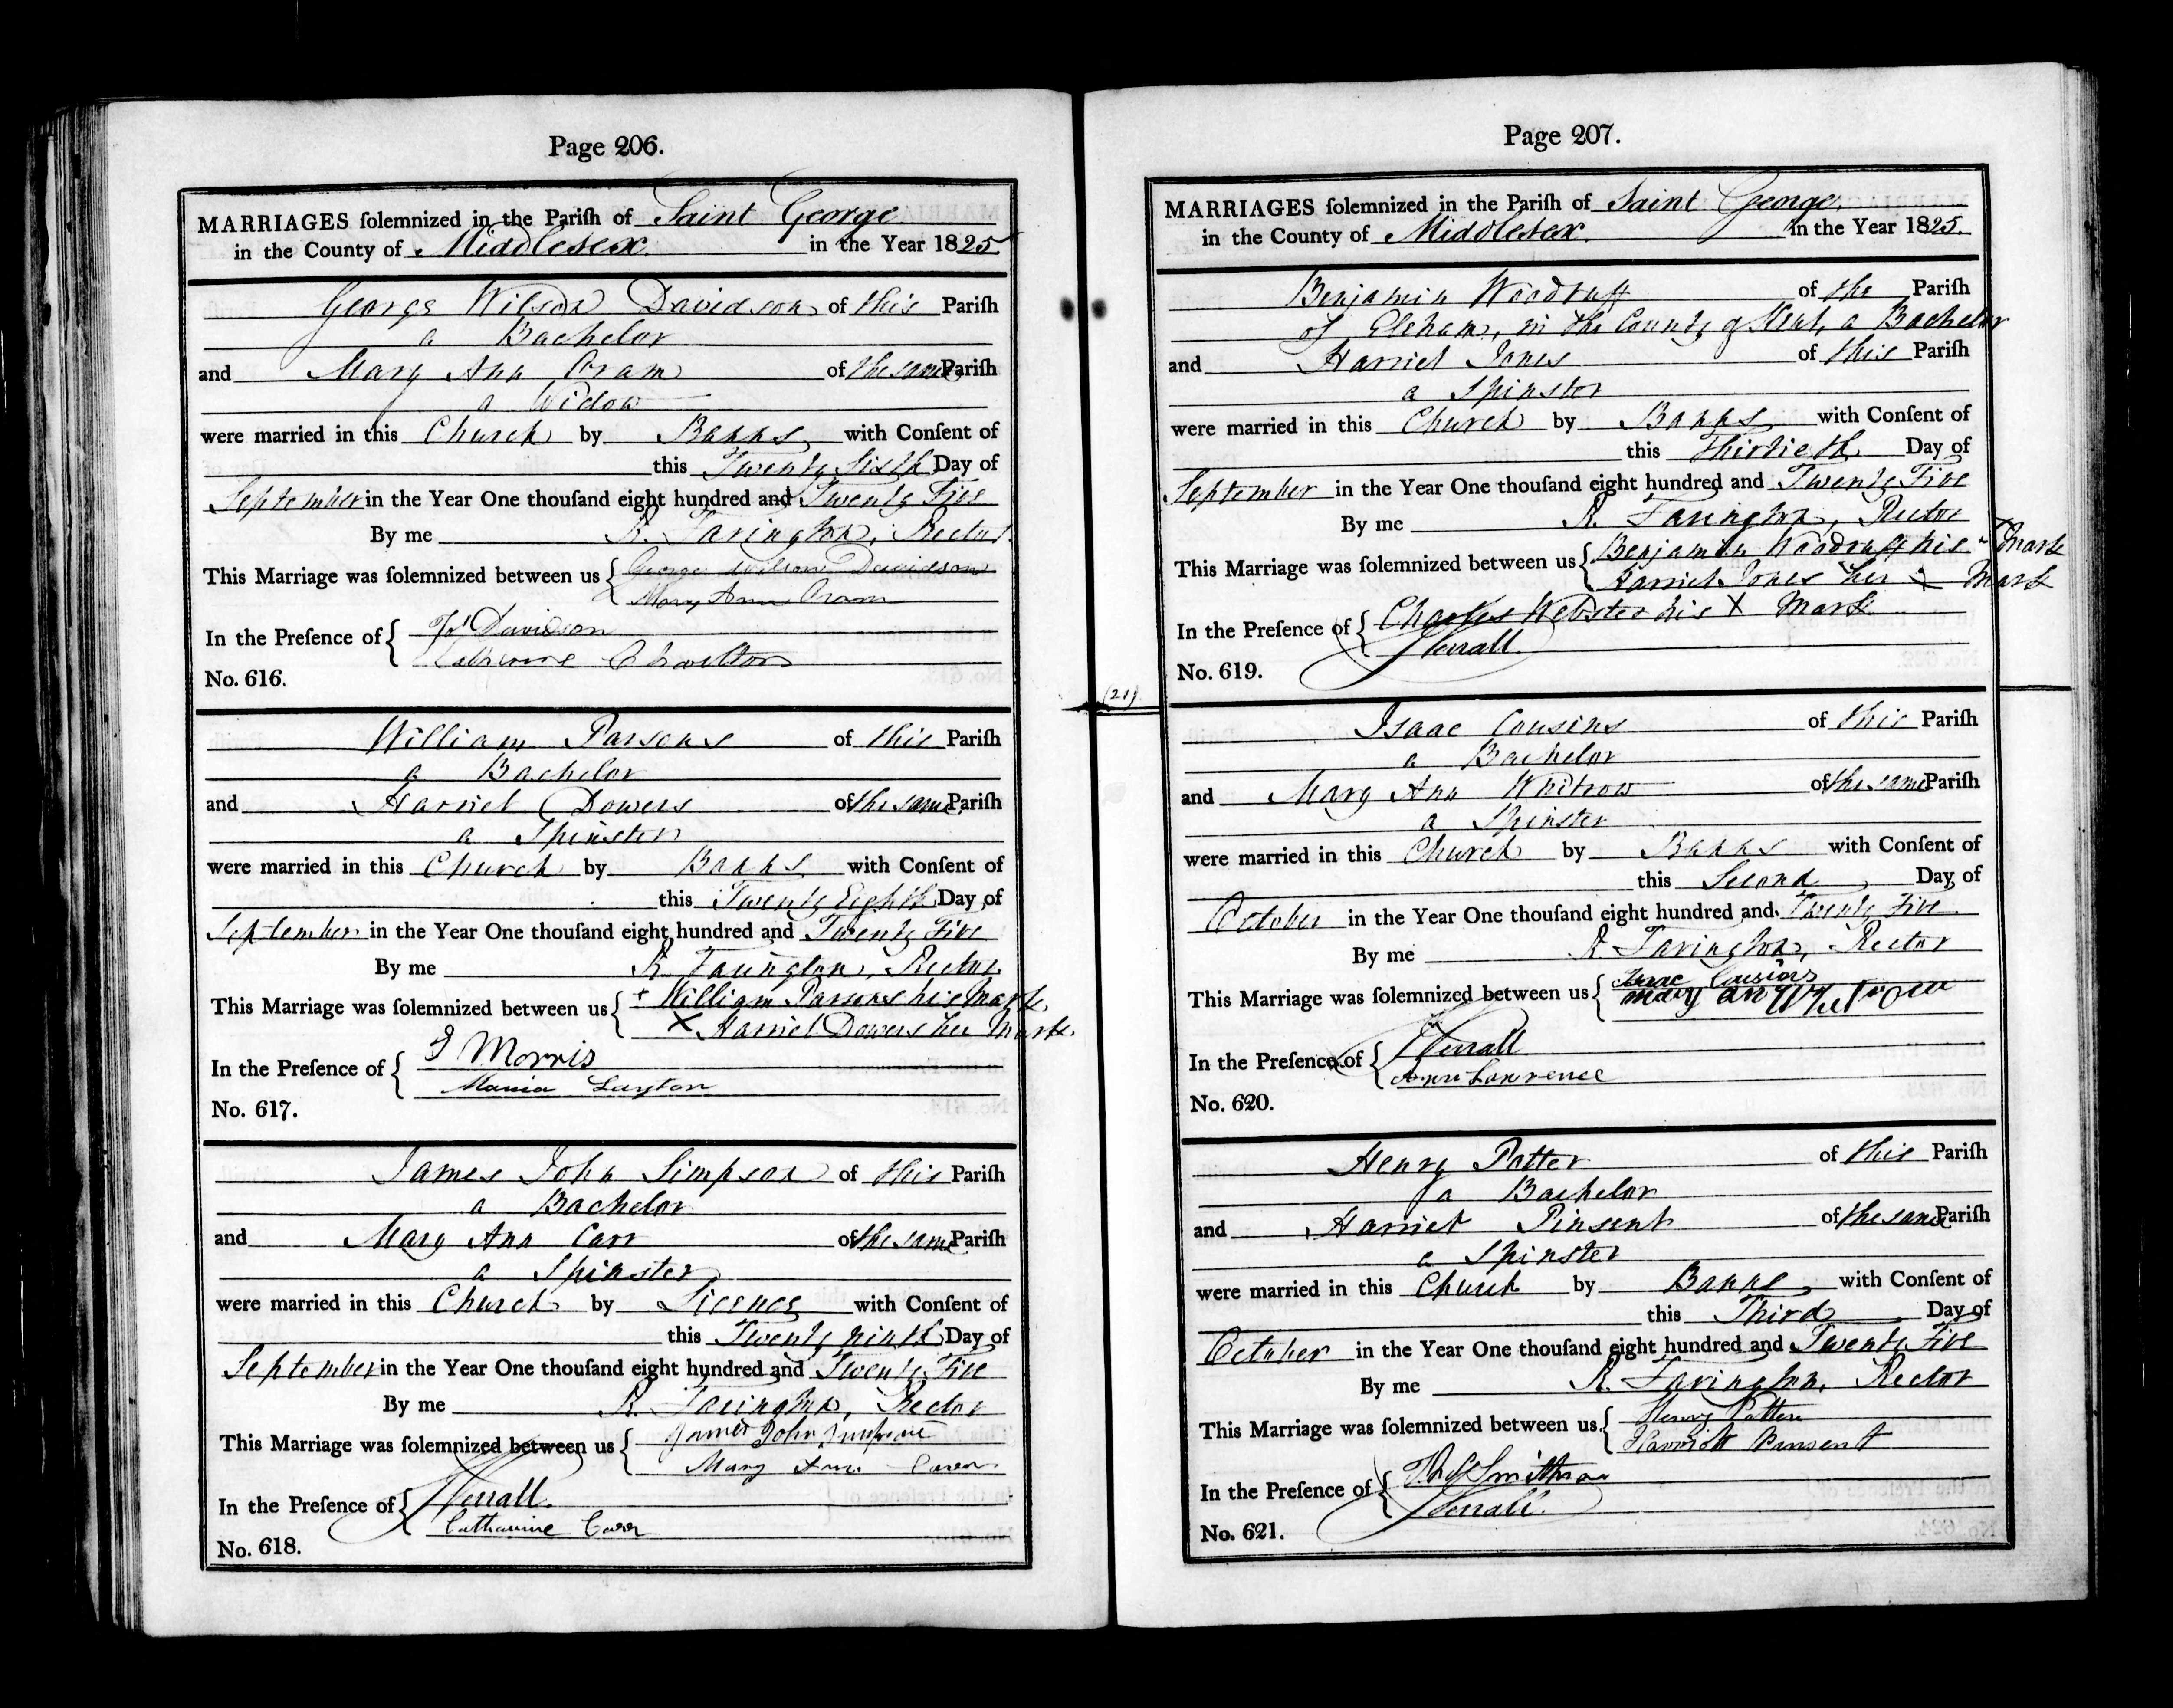 Page 206.
MARRIAGES ſolemnized in the Pariſh of Saint George
in the County of Middlesex in the Year 1825
George Wilson Davidson of this Pariſh
a Bachelor
and Mary Ann Cram of the same Pariſh
a Widow
were married in this Church by Banns with Conſent of
this Twenty Sixth Day of
September in the Year One thouſand eight hundred and Twenty Five
By me R. Farington, Rector
This Marriage was ſolemnized between us { George Wilson Davidson
Mary Ann Cram
In the Preſence of { Davidson
Catherine Charlton
No. 616.
William Parsons of this Pariſh
a Bachelor
and Harriet Dowers of the same Pariſh
a Spinster
were married in this Church by Banns with Conſent of
this Twenty Eighth Day of
September in the Year One thouſand eight hundred and Twenty Five
By me R Farington, Rector
This Marriage was ſolemnized between us { + William Parsons his Mark
X Harriet Dowers her Mark
In the Preſence of { J Morris
Maria Layton
No. 617.
James John Simpson of this Pariſh
a Bachelor
and Mary Ann Carr of the same Pariſh
a Spinster
were married in this Church by Licence with Conſent of
this Twenty ninth Day of
September in the Year One thouſand eight hundred and Twenty Five
By me R. Farington, Rector
This Marriage was ſolemnized between us { James John Simpson
Mary Ann Carr
In the Preſence of {
Catharine Carr
No. 618.
Page 207.
MARRIAGES ſolemnized in the Pariſh of Saint George,
in the County of Middlesex in the Year 1825.
Benjamin Woodruff of the Pariſh
of Eltham, in the County of Kent, a Bachelor
and Harriet Jones of this Pariſh
a Spinster
were married in this Church by Banns with Conſent of
this Thirtieth Day of
September in the Year One thouſand eight hundred and Twenty Five
By me R. Farington, Rector
This Marriage was ſolemnized between us { Benjamin Woodruff his Mark
Harriet Jones her X Mark
In the Preſence of { Charles Webster his X Mark
No. 619.
(21)
Isaac Cousins of this Pariſh
a Bachelor
and Mary Ann Whitrow of the same Pariſh
a Spinster
were married in this Church by Banns with Conſent of
this Second Day of
October in the Year One thouſand eight hundred and Twenty Five
By me R Farington, Rector
This Marriage was ſolemnized between us { Isaac Cousins
mary an Whetrow
In the Preſence of {
Ann Lawrence
No. 620.
Henry Potter of this Pariſh
a Bachelor
and Harriet Pinsent of the same Pariſh
a Spinster
were married in this Church by Banns with Conſent of
this Third Day of
October in the Year One thouſand eight hundred and Twenty Five
By me R. Farington, Rector
This Marriage was ſolemnized between us { Henry Potter
Harriott Pinsent
In the Preſence of {
No. 621.